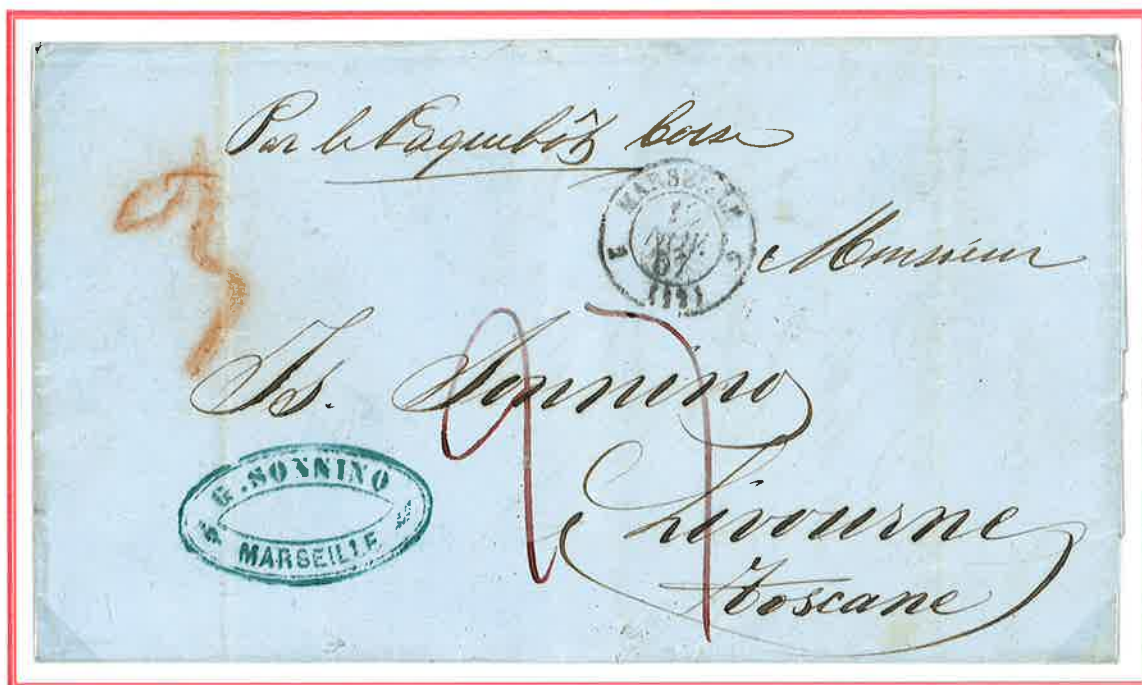 Par le Paquebôt Corse
MARSEILLE
57
Monsieur
Is. Sonnino
Livourne
Toscane
G. SONNINO
MARSEILLE